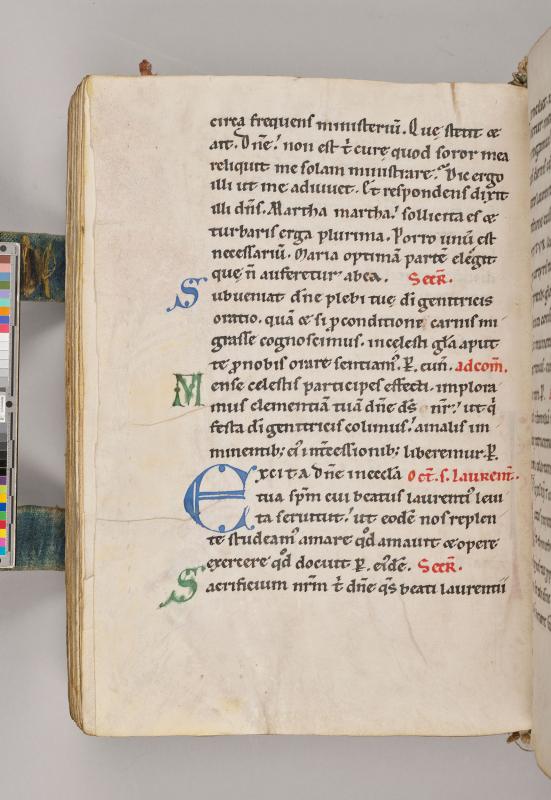 circa frequens ministeriū. Que stetit &
ait. Dn̄e! non est t̄ cure quod soror mea
reliquit me solam ministrare? Dic ergo
illi ut me adiuuet. Et respondens dixit
illi dn̄s. Martha martha! sollicita es &
turbaris erga plurima. Porro unū est
necessariū. Maria optimā partē elegit
que n̄ auferetur ab ea. Secr̄.
Subueniat dn̄e plebi tue di genitricis
oratio. quā & si p conditione carnis mi
grasse cognoscimus. in celesti gla aput
te p nobis orare sentiam᷒. P. eun̄. ad com̄.
Mense celestis participes effecti. implora
mus clementiā tuā dn̄e ds̄ nr̄! ut q̄
festa di genitricis colimus! a malis im
minentib; ei᷒ int̄cessionib; liberemur. P.
Excita dn̄e in eccla Oct̄. s. Laurent̄.
tua sp̄m cui beatus laurenti᷒ leui
ta seruiuit! ut eodē nos replen
te studeam᷒ amare qd̄ amauit & opere
exercere qd̄ docuit P. eidē. Secr̄.
Sacrificium nr̄m t̄ dn̄e qs̄ beati laurentii